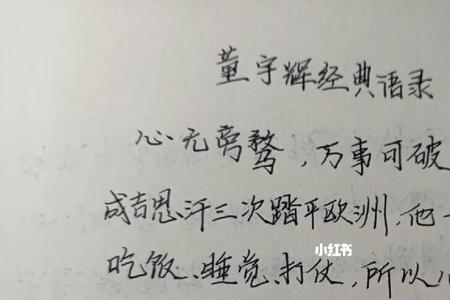 董宇辉经典语录
心无旁骛，万事可破
成吉思汗三次踏平欧洲，他
小红书
吃饭、睡觉、打仗，所以